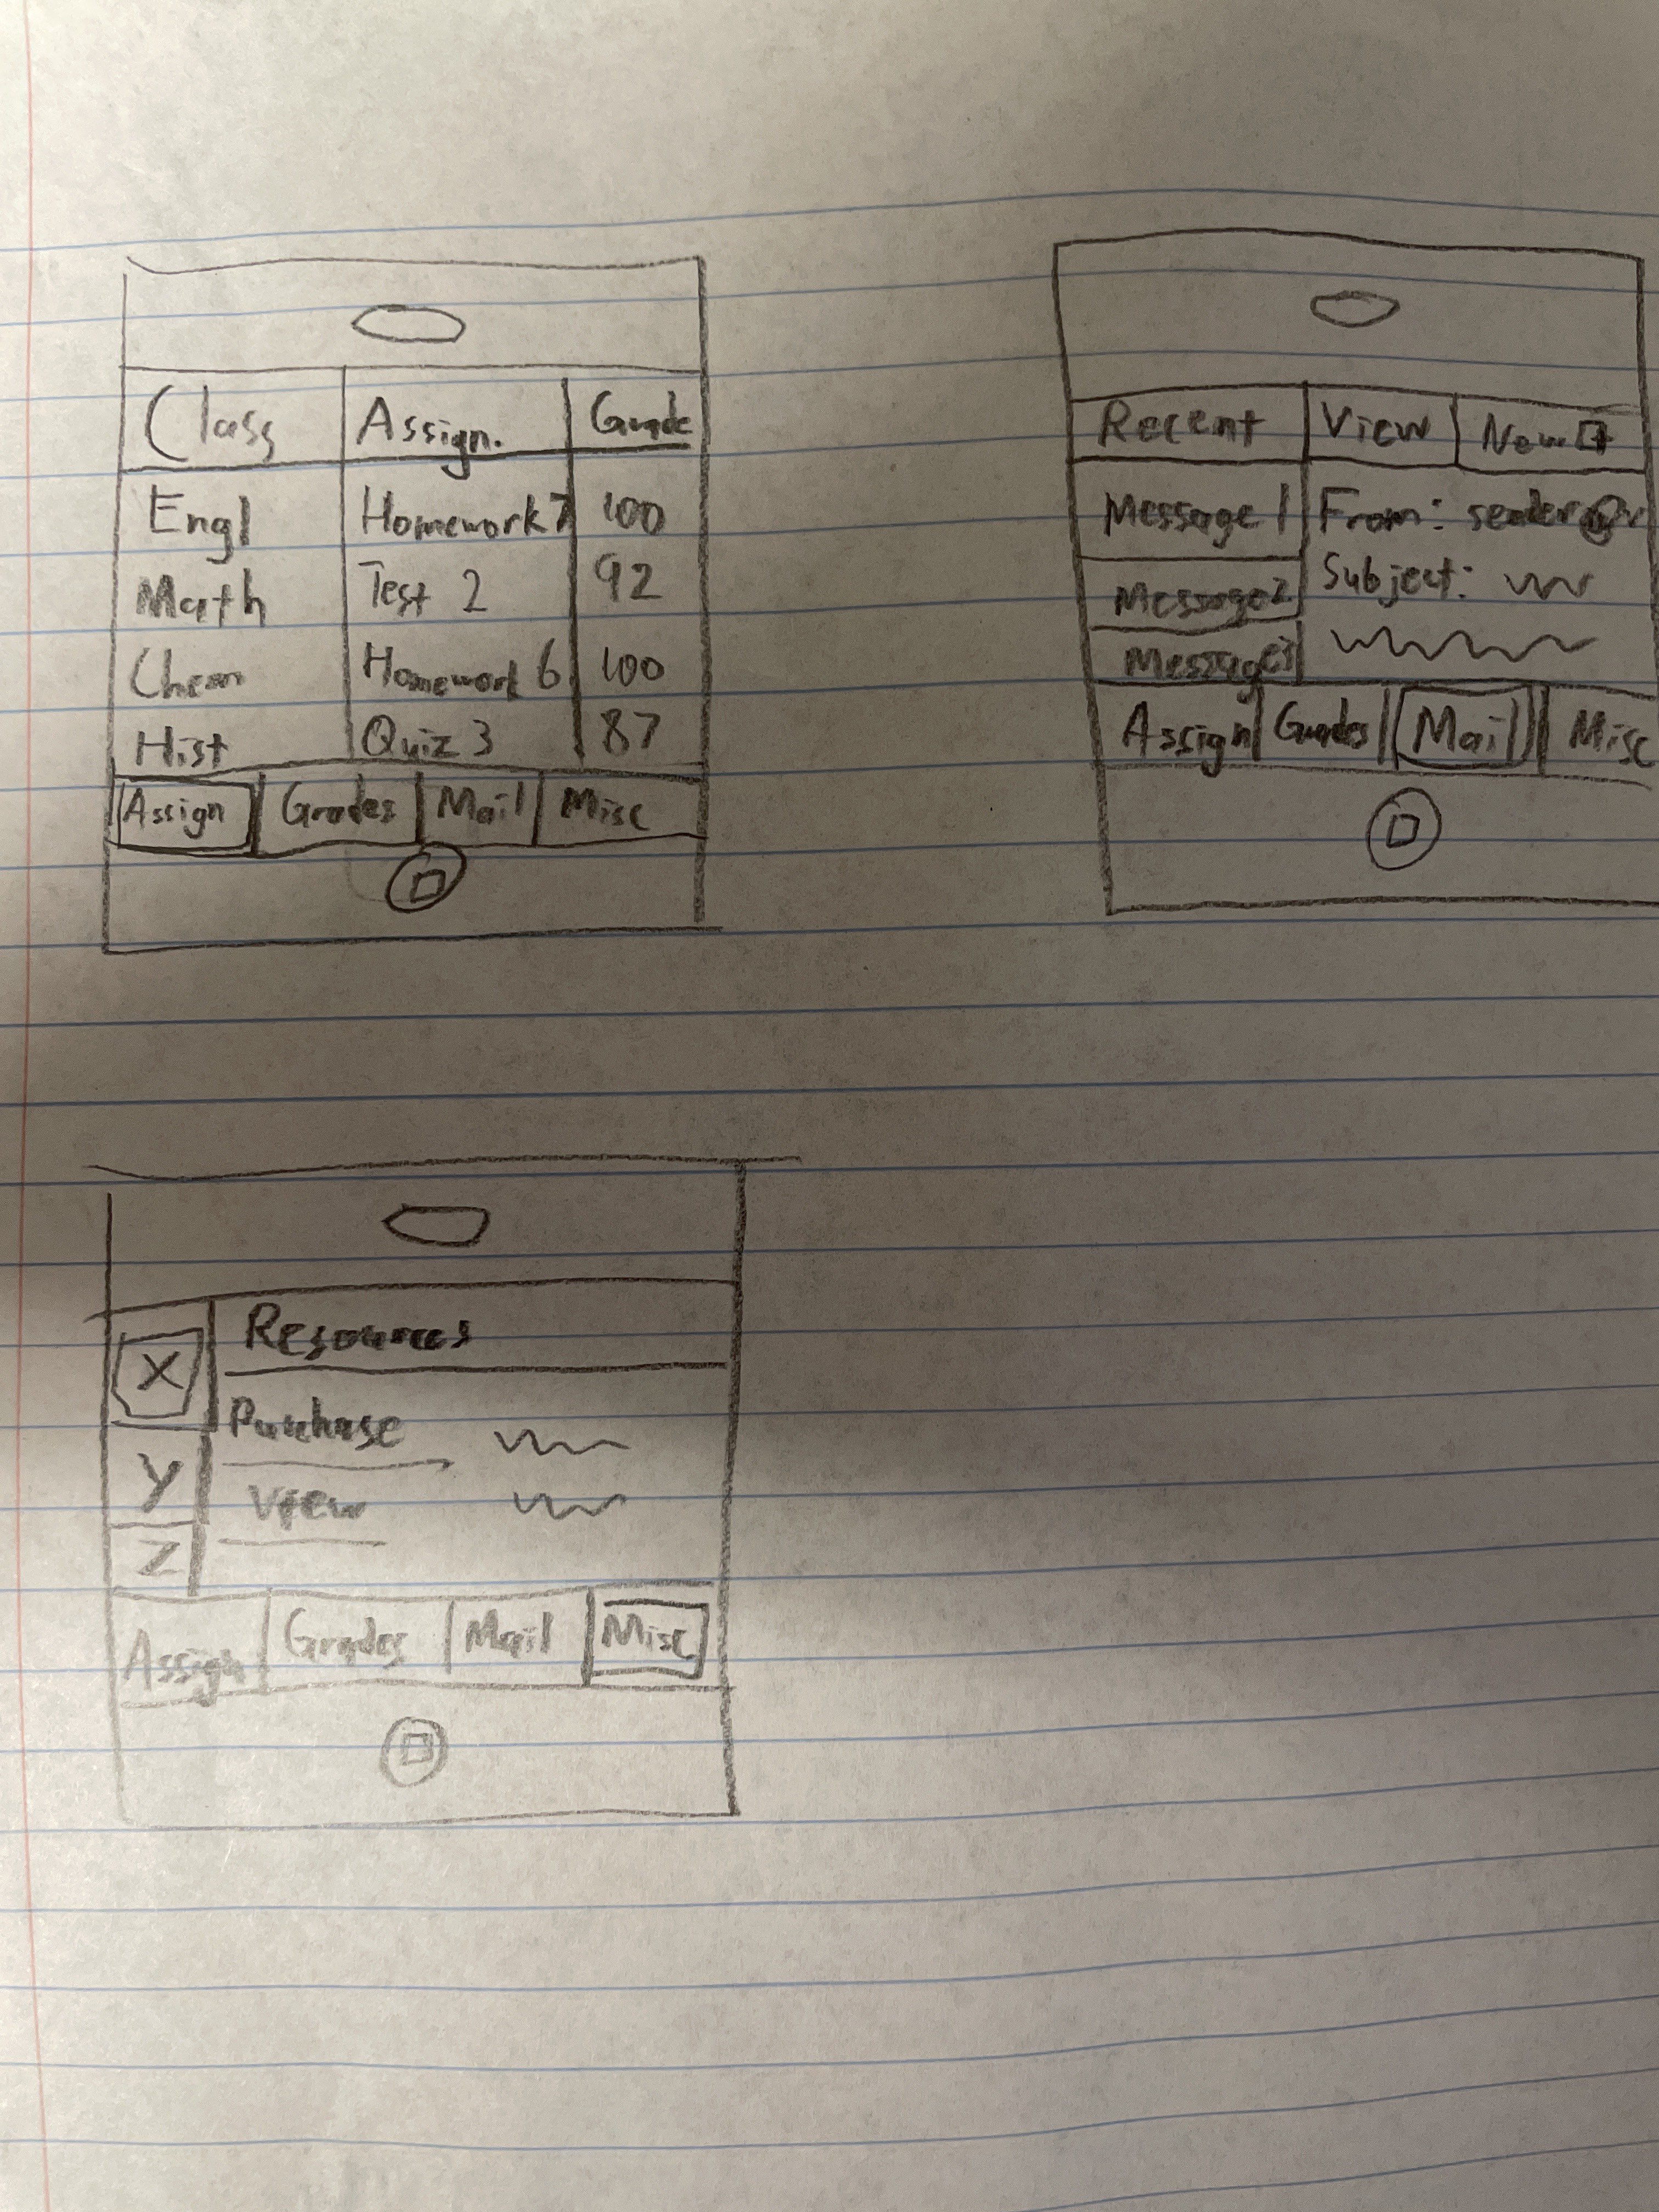 Class Assign. Grade
Engl Homework 7 100
Math Test 2 92
Chem Homework 6 100
Hist Quiz 3 87
Assign Grades Mail Misc
Recent View New +
Message 1 From: sender@
Message 2 Subject:
Message 3
Assign Grades Mail Misc
X Resources
Purchase
Y View
Z
Assign Grades Mail Misc